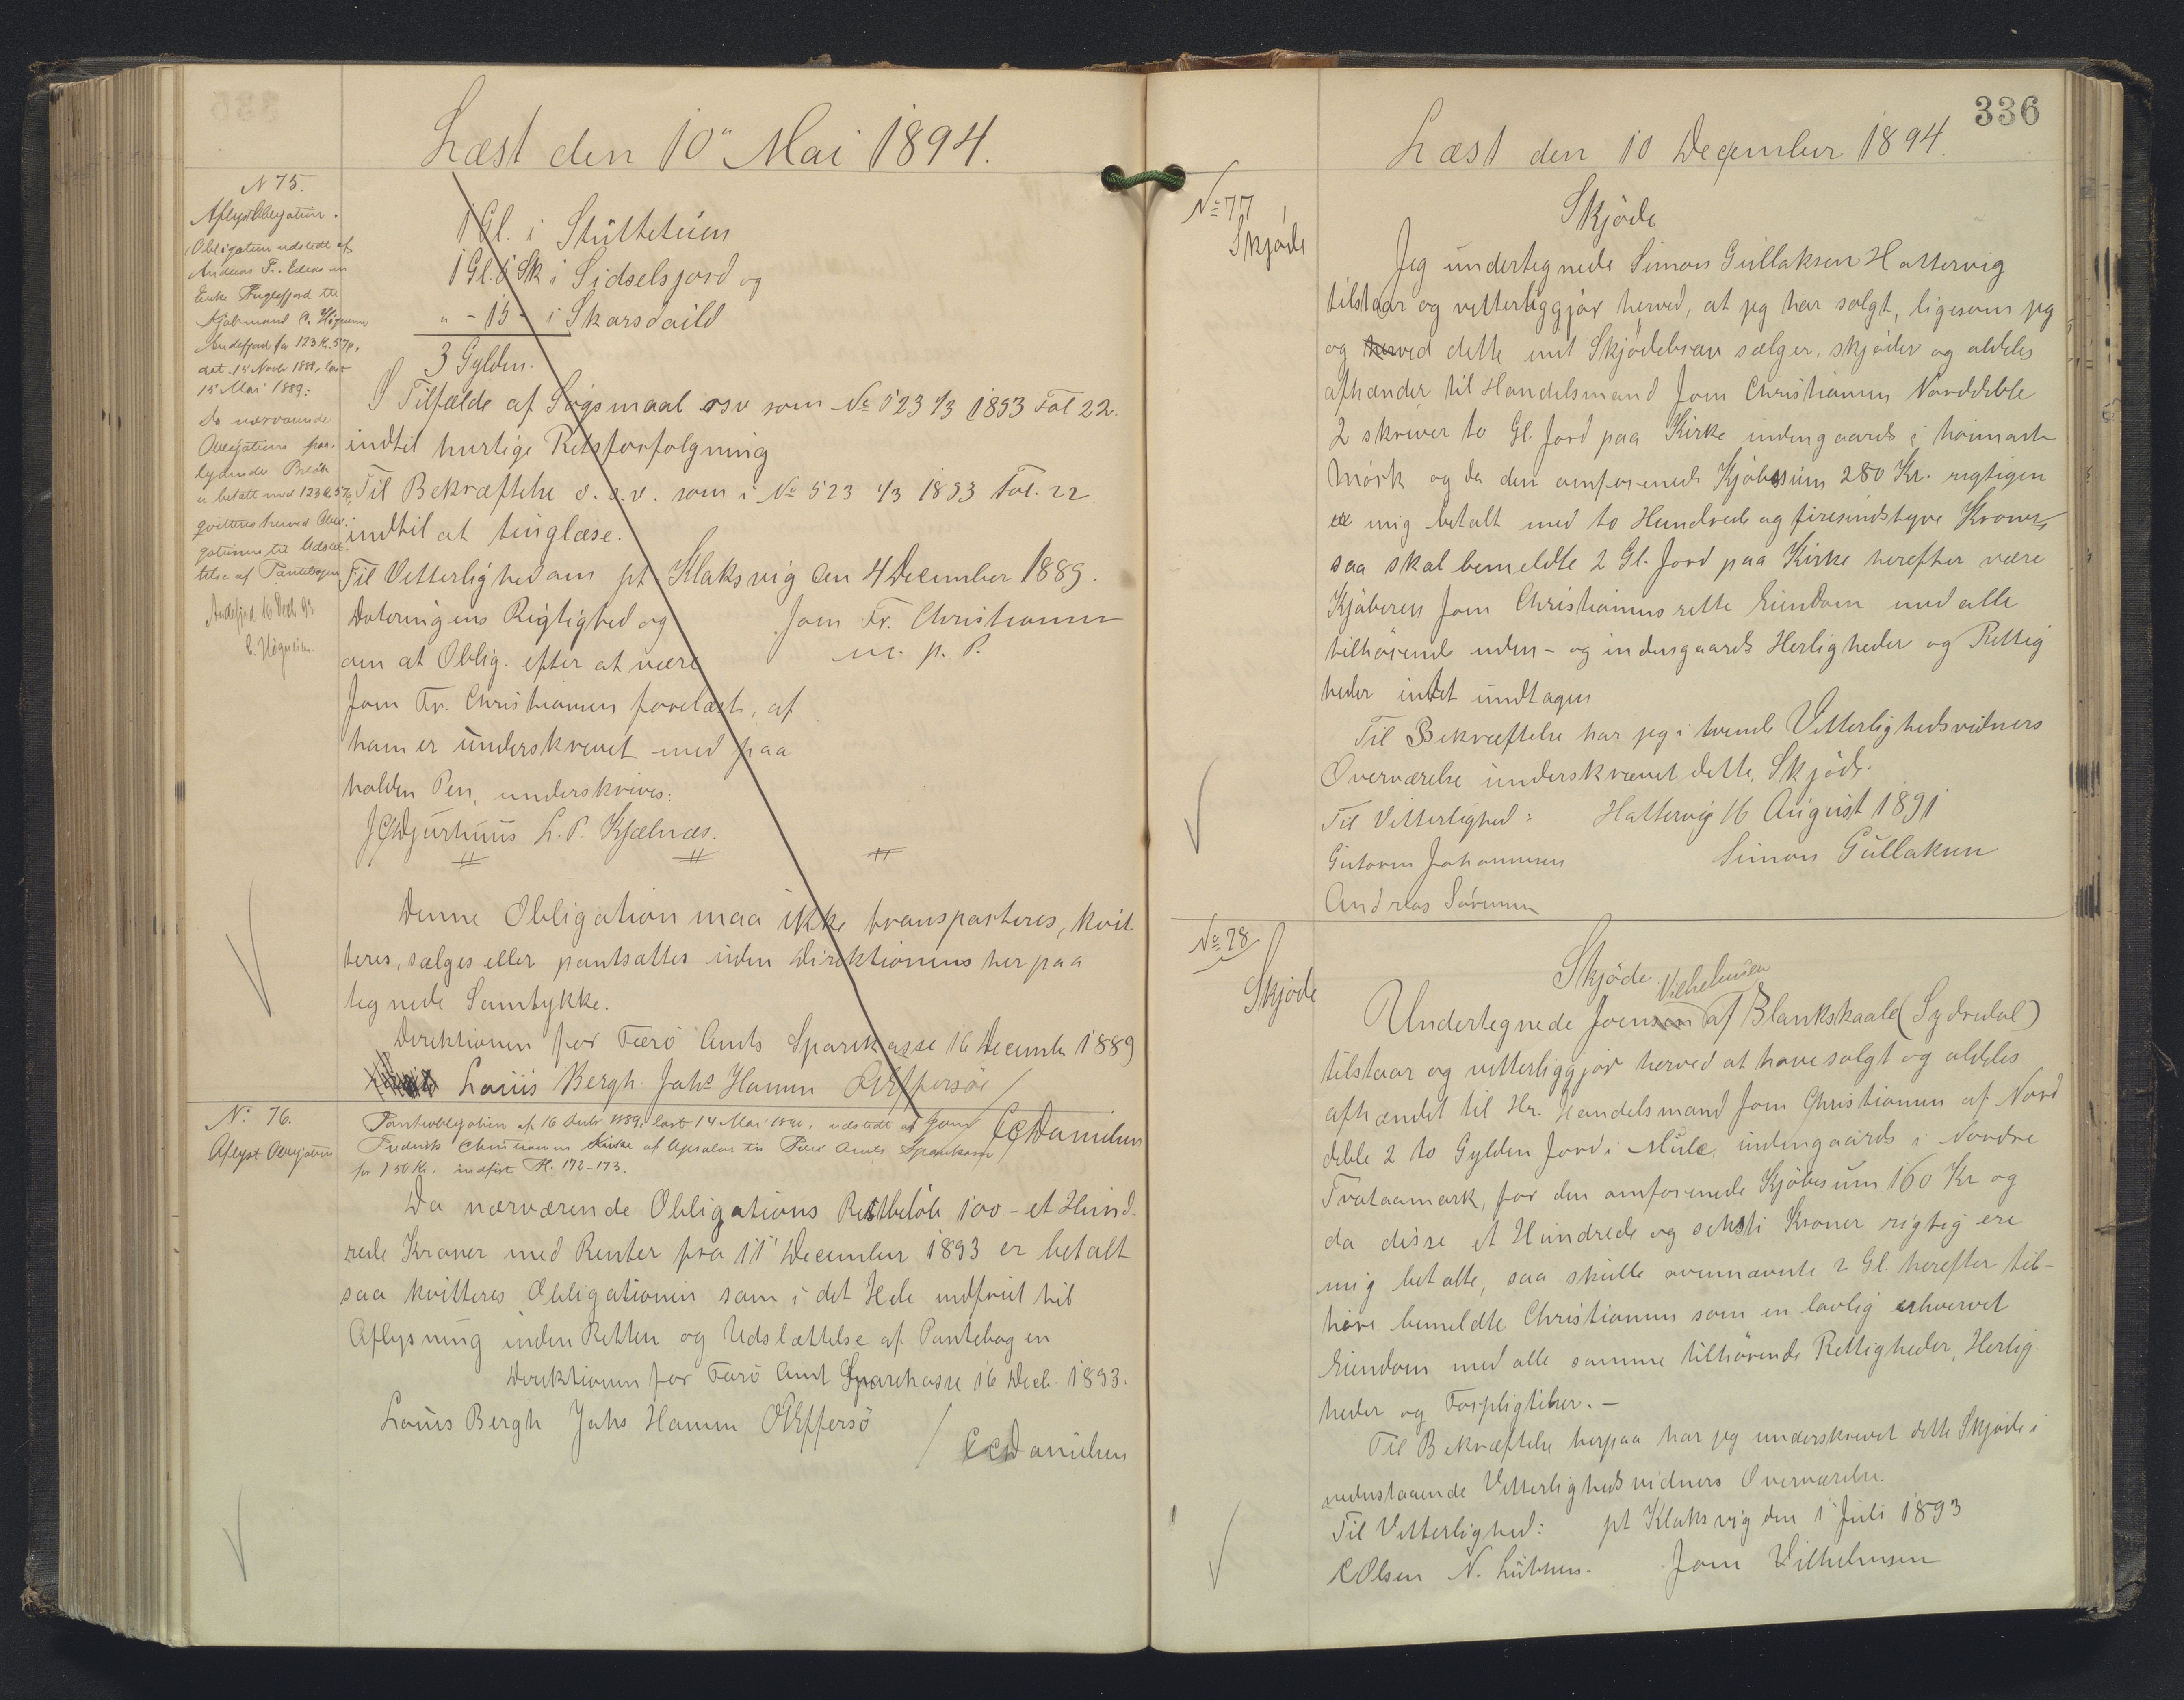 Læst den 10" Mai 1894.
N 75.
Aflyst Obligation.
Obligation udstedt af
Andreas Fr.
Enke Fuglefjord til
Kjøbmand C.
Andefjord for 123 Kr. 57 ø.
dat. 15 Novbr 1888, læst
15 Mai 1889:
Da nærværende
Obligations paa-
lydende Beløb
er betalt med 123 Kr. 57,
qvitteres herved Obli-
gationen til Udslet-
telse af Pantebogen
Andefjord 16 Decb 93
1 Gl. i Stütteteüm
1 Gl. 5 Sk i Sidselsjord og
" - 15 - i Skarsdaild
3 Gylden.
I Tilfælde af Søgsmaal osv som No 523 1/3 1853 Fol 22.
indtil hurtige Retsforfølgning
Til Bekræftelse o. s. v. som i No 523 1/3 1853 Fol. 22
indtil at tinglæse.
Til Vitterlighed om pt Klaksvig den 4 December 1889.
Dateringens Rigtighed og Joen Fr. Christiansen
om at Oblig. efter at være m. p. P.
Joen Fr. Christiansen forelæst, af
ham er underskrevet med paa
holden Pen, underskrives:
J C Djurhuus L. P. Kjælnæs.
Denne Obligation maa ikke transporteres, kvit
teres, sælges eller pantsættes uden Direktionens her paa
tegnede Samtykke.
Direktionen for Færö Amts Sparekasse 16 December 1889
Louis Bergh Johs Hamm O Effersöe /
C C Danielsen
No 76.
Aflyst Obligation
Pantobligation af 16 Decbr. 1889, læst 14 Mai 1890, udstedt af Joen
Frederik Christiansen af til Færö Amts Sparekasse
for 150 Kr. indført P. 172-173.
Da nærværende Obligations Restbeløb 100 - et Hund-
rede Kroner med Renter fra 11" December 1893 er betalt
saa kvitteres Obligationen som i det Hele indfriet til
Aflysning inden Retten og Udslættelse af Pantebogen
Direktionen for Færö Amt Sparekasse 16 Decb. 1893.
Louis Bergh Johs Hamm O Effersö
/ C C Danielsen
336
Læst den 10 December 1894.
No 77
Skjøde
Skjøde
Jeg undertegnede Simon Gullaksen Hattervig
tilstaar og vitterliggjør herved, at jeg har solgt, ligesom jeg
og herved dette mit Skjødebrev sælger, skjøder og aldeles
afhænder til Handelsmand Joen Christiansen Norddeble
2 skriver to Gl. Jord paa Kirke indengaards i
Mørk og da den omforenede Kjøbesum 280 Kr. rigtigen
er mig betalt med to Hundrede og firesindstyve Kroner,
saa skal bemeldte 2 Gl. Jord paa Kirke herefter være
Kjøberen Joen Christiansens rette Eiendom med alle
tilhørende uden- og indengaards Herligheder og Rettig
heder intet undtagen
Til Bekræftelse har jeg i tvende Vitterlighedsvidners
Overværelse underskrevet dette Skjøde.
Til Vitterlighed: Hattervig 16 August 1891
Gutorm Johannesen Simon Gullaksen
Andreas Sørensen
No 78
Skjøde
Skjøde
Vilhelmsen
Undertegnede Joensen af Blankskaale (Sydredal)
tilstaar og vitterliggjør herved at have solgt og aldeles
afhændet til Hr. Handelsmand Joen Christiansen af Nord
deble 2 to Gylden Jord i Mule, indengaards i Nordre
Trøtaamark, for den omforenede Kjøbesum 160 Kr og
da disse et Hundrede og seksti Kroner rigtig ere
mig betalte, saa skulle ovennævnte 2 Gl. herefter til-
høre bemeldte Christiansen som en lovlig erhvervet
Eiendom med alle samme tilhørende Rettigheder, Herlig
heder og Forpligtelser. -
Til Bekræftelse herpaa har jeg underskrevet dette Skjøde i
nedenstaaende Vitterlighedsvidners Overværelse.
Til Vitterlighed: pt Klaksvig den 1 Juli 1893
C Olsen N. Joen Vilhelmsen